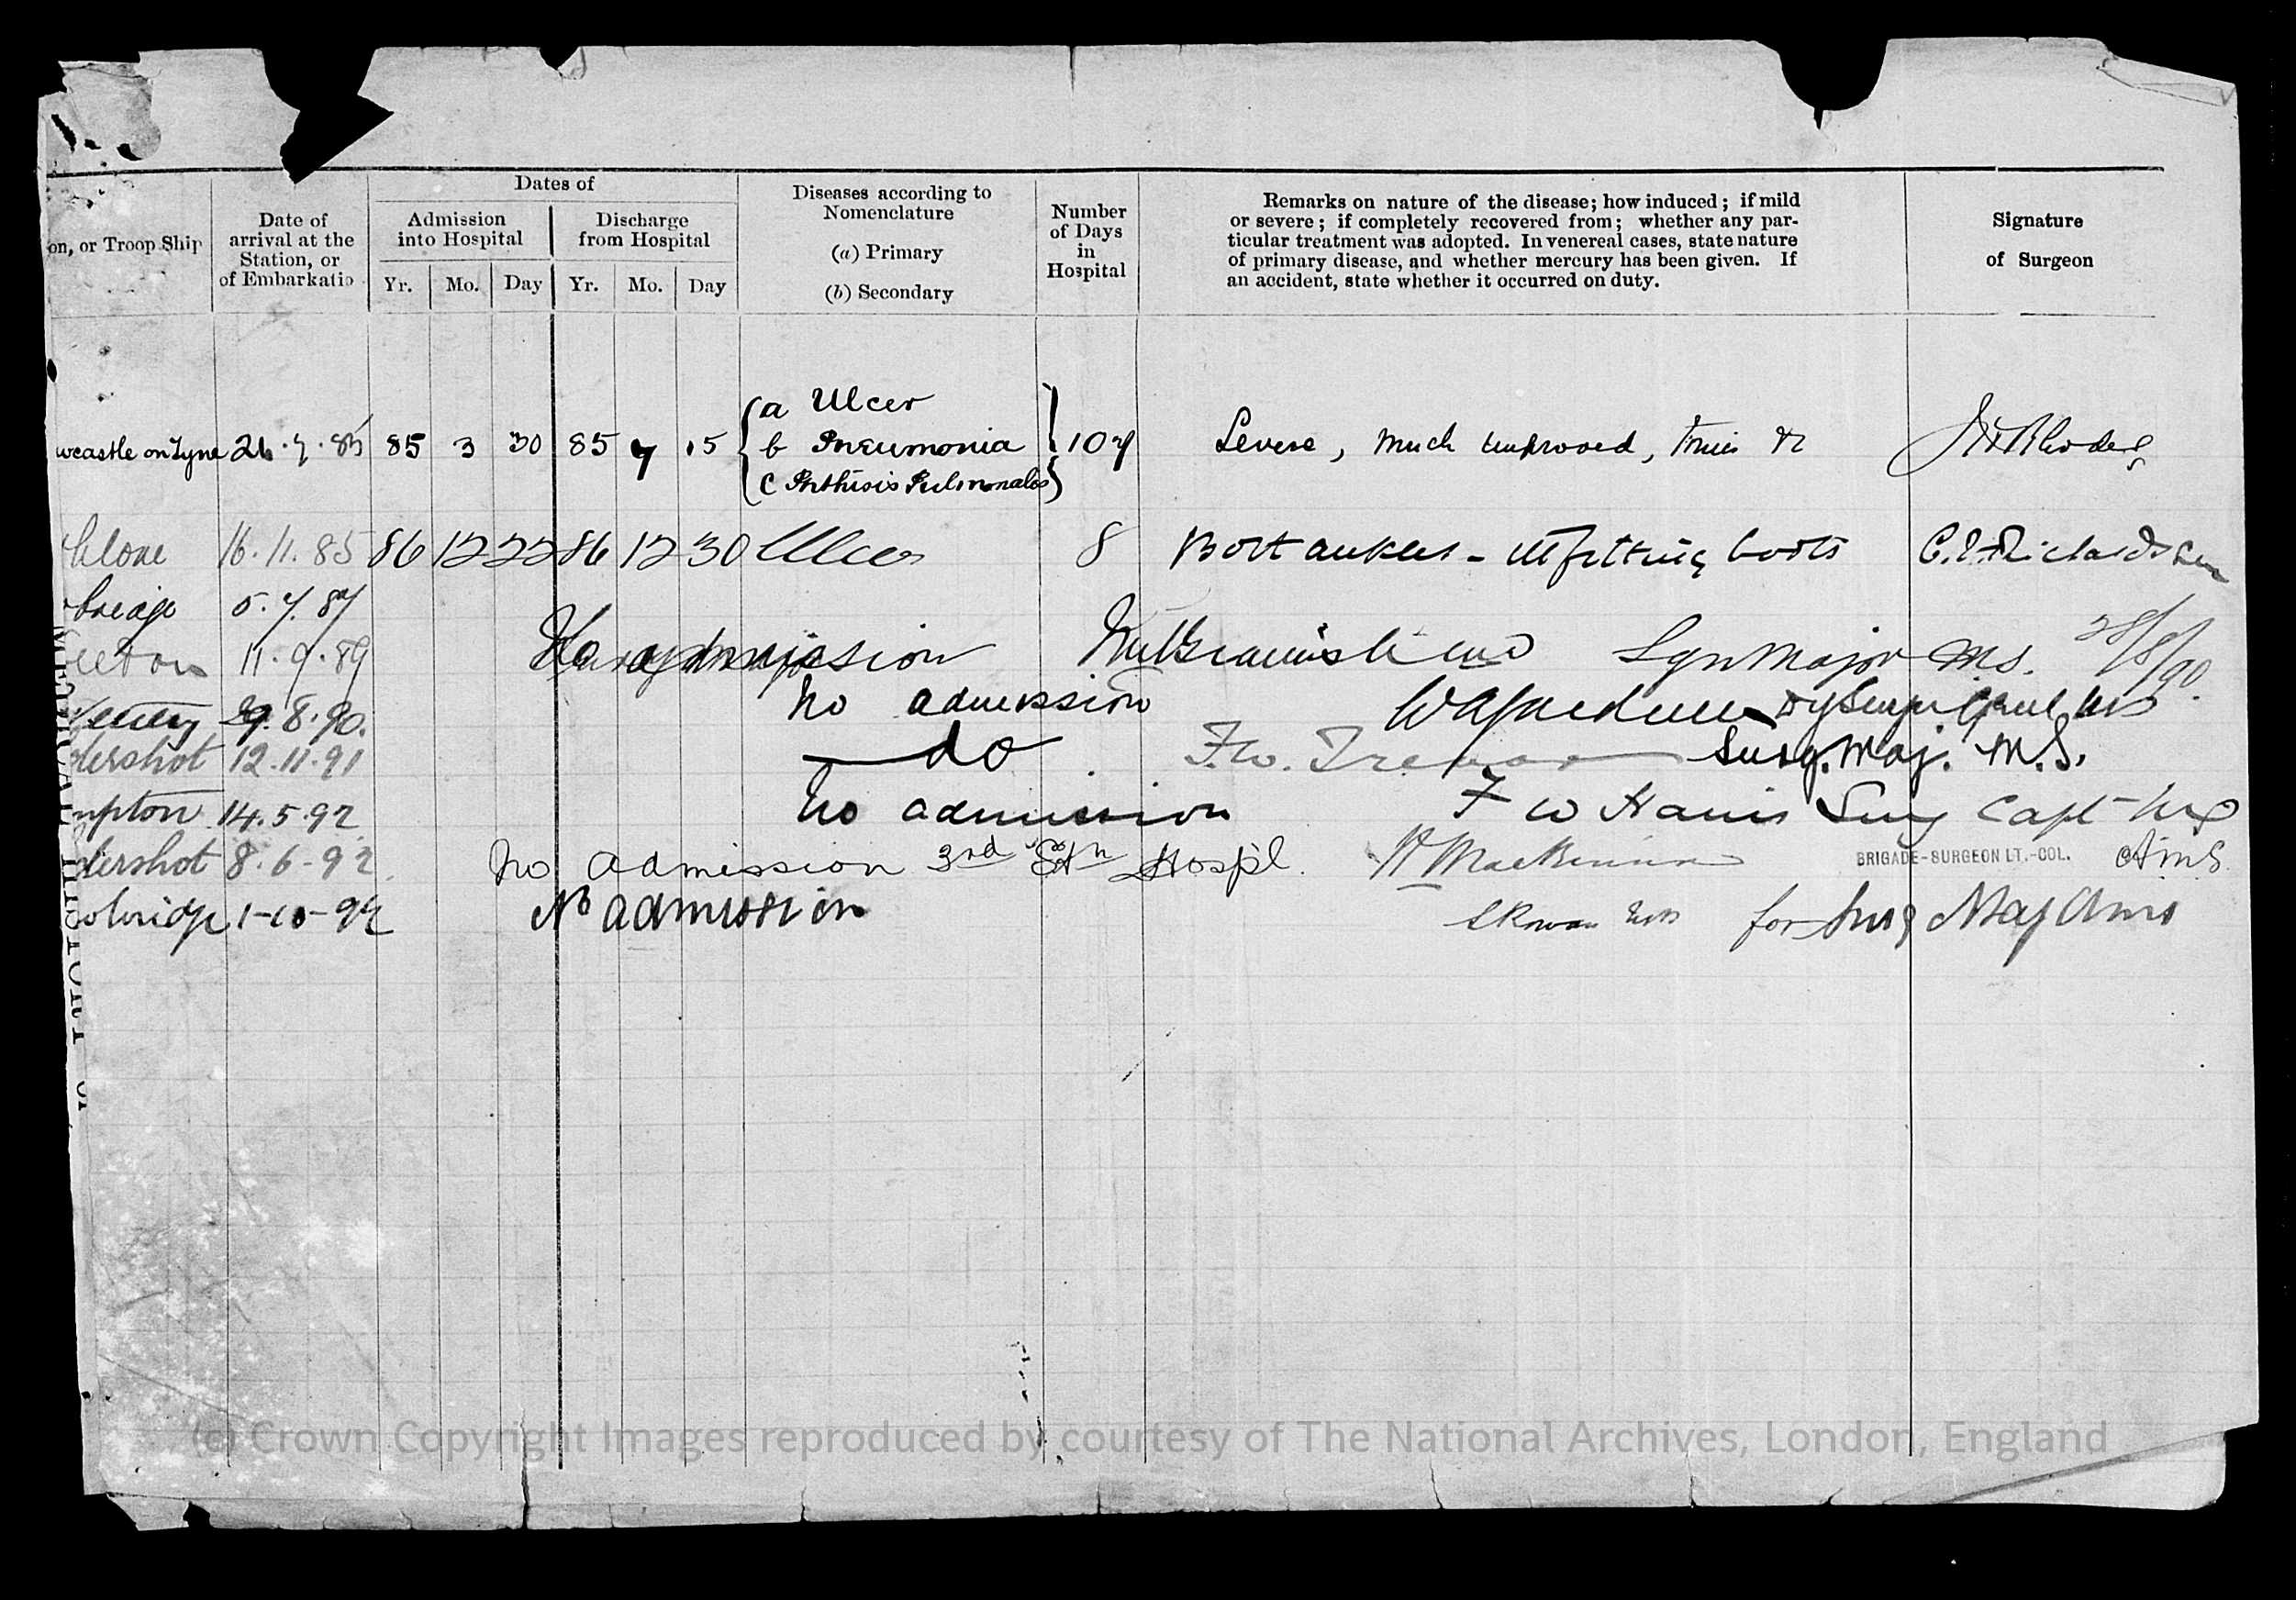 Dates of
on, or Troop Ship
Date of
arrival at the
Station, or
of Embarkatio
Admission
into Hospital
Discharge
from Hospital
Yr. Mo. Day Yr. Mo. Day
Diseases according to
Nomenclature
(a) Primary
(b) Secondary
Number
of Days
in
Hospital
Remarks on nature of the disease; how induced; if mild
or severe; if completely recovered from; whether any par-
ticular treatment was adopted. In venereal cases, state nature
of primary disease, and whether mercury has been given. If
an accident, state whether it occurred on duty.
Signature
of Surgeon
a Ulcer
wcastle on Tyne 85 3 30 85 7 15 b Pneumonia 107 Severe, much improved, Rhodes
c Phthisis Pulmonalis
hlone 16.11.85 86 12 22 86 12 30 Ulcer 8 Both ankles - ill fitting boots C. Richardson
5.7.87
11.9.89 No admission Major M.S. 28/8/90.
29.8.90. No admission
dershot 12.11.91 do F.W. Trevor Surg. Maj. M.S.
mpton 14.5.92 No admission F W Harris Surg Capt
dershot 8.6-92. No admission 3rd Stn Hospl. BRIGADE-SURGEON LT.-COL. AMS.
No admission for Surg Maj AMS
MEDICAL HISTORY
(c) Crown Copyright Images reproduced by courtesy of The National Archives, London, England